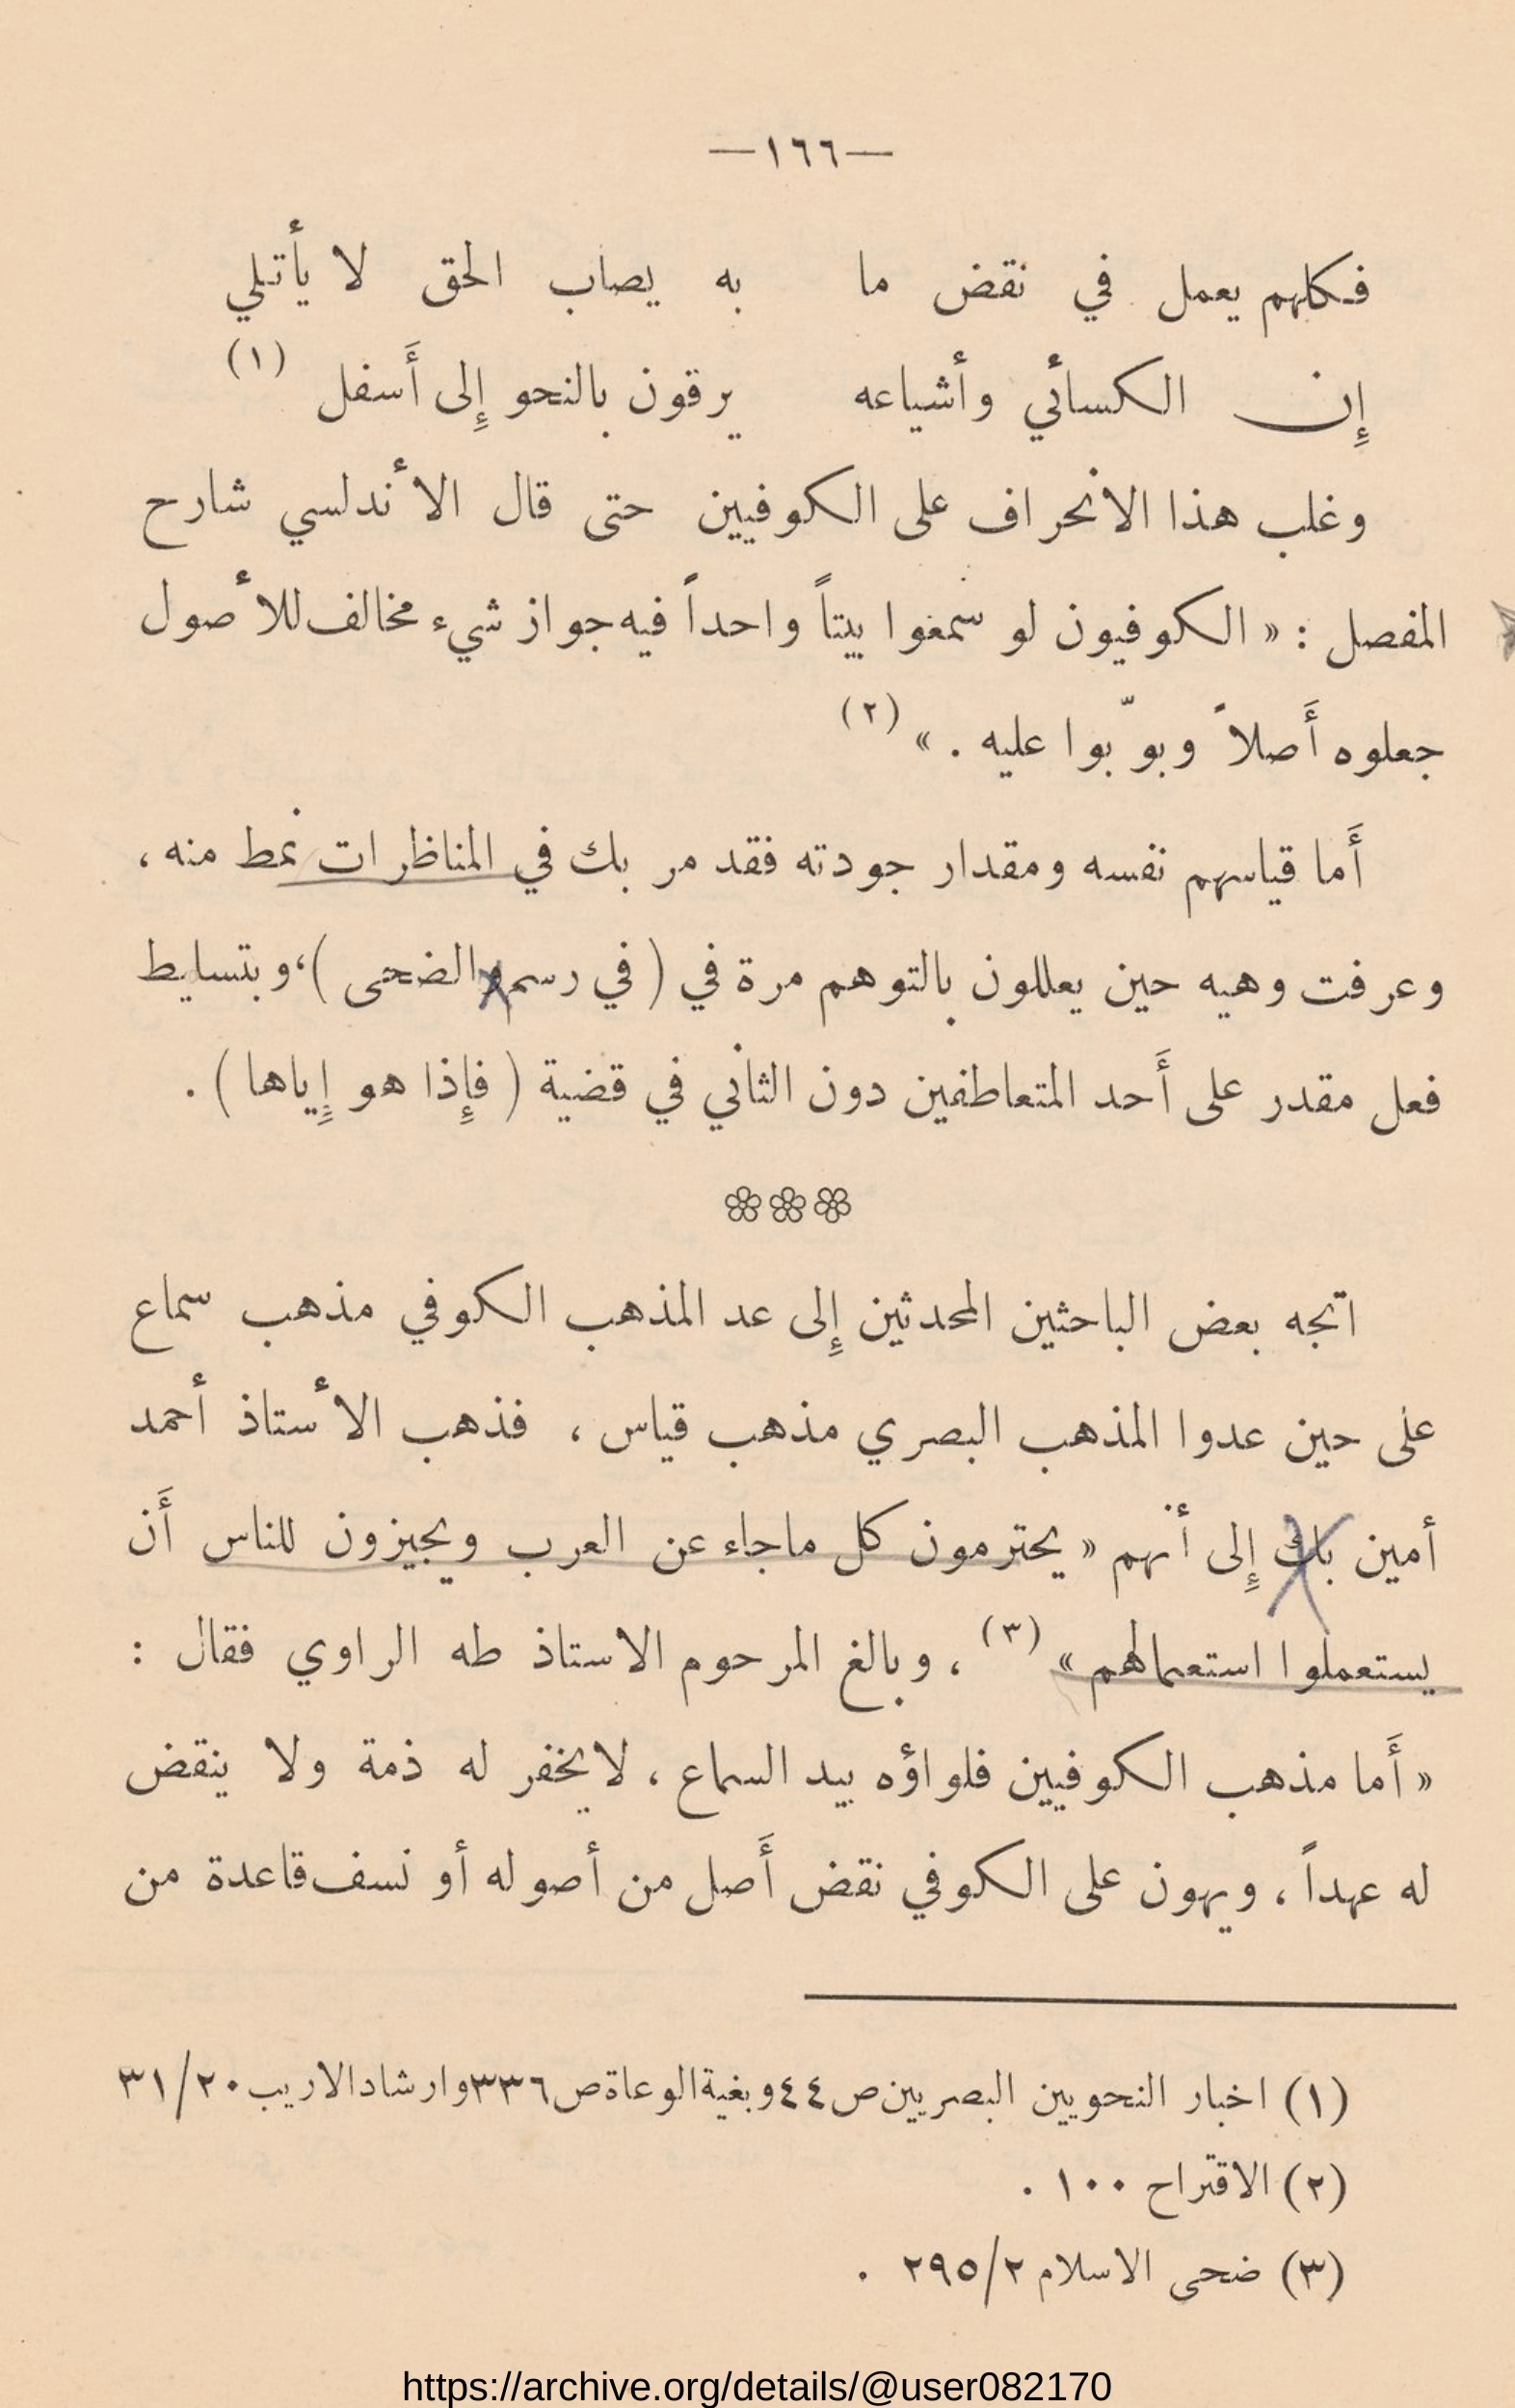 —١٦٦—
فكلهم يعمل في نقض ما به يصاب الحق لا يأتلي
إن الكسائي وأشياعه يرقون بالنحو إِلى أَسفل (١)
وغلب هذا الانحراف على الكوفيين حتى قال الأندلسي شارح
المفصل : « الكوفيون لو سمعوا بيتاً واحداً فيه جواز شيء مخالف للأصول
جعلوه أَصلاً وبوّبوا عليه . » (٢)
أَما قياسهم نفسه ومقدار جودته فقد مر بك في المناظرات نمط منه ،
وعرفت وهيه حين يعللون بالتوهم مرة في ( في رسم والضحى )، وبتسليط
فعل مقدر على أَحد المتعاطفين دون الثاني في قضية ( فإِذا هو إِياها ) .
اتجه بعض الباحثين المحدثين إِلى عد المذهب الكوفي مذهب سماع
على حين عدوا المذهب البصري مذهب قياس ، فذهب الأستاذ أحمد
أمين بك إِلى أنهم « يحترمون كل ماجاء عن العرب ويجيزون للناس أَن
يستعملوا استعمالهم » (٣) ، وبالغ المرحوم الاستاذ طه الراوي فقال :
« أَما مذهب الكوفيين فلواؤه بيد السماع ، لايخفر له ذمة ولا ينقض
له عهداً ، ويهون على الكوفي نقض أَصل من أصوله أو نسف قاعدة من
(١) اخبار النحويين البصريين ص ٤٤ وبغية الوعاة ص ٣٣٦ وارشاد الاريب ٣١/٢٠
(٢) الاقتراح ١٠٠ .
(٣) ضحى الاسلام ٢٩٥/٢ .
https://archive.org/details/@user082170